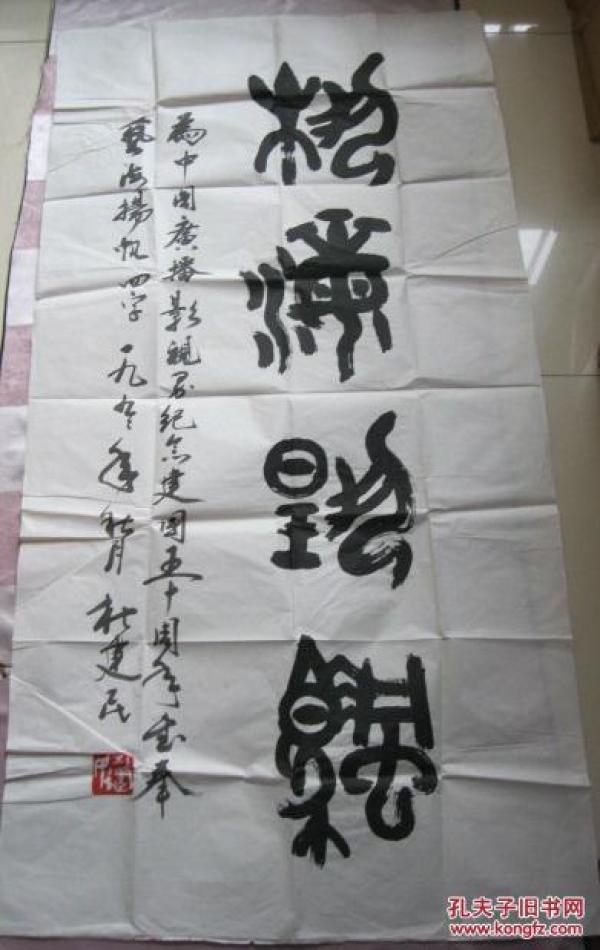 藝海揚
為中國廣播影視界紀念建國五十周年書奉
藝海揚帆四字 一九九九年秋月 杜建民
孔夫子旧书网
www.kongfz.com